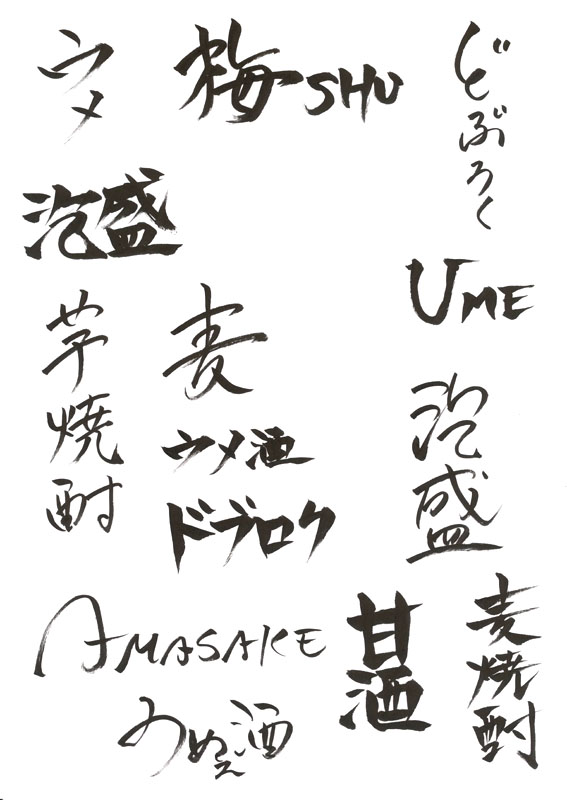 ウメ
梅SHU
どぶろく
泡盛
UME
芋焼酎
麦
泡盛
ウメ酒
ドブロク
麦焼酎
AMASAKE
甘酒
うめ酒